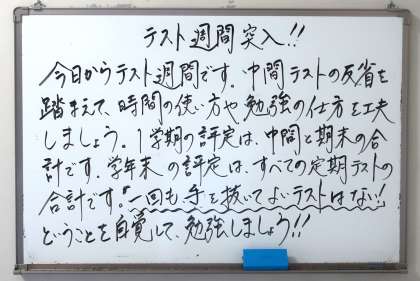 テスト週間突入!!
今日からテスト週間です。中間テストの反省を
踏まえて、時間の使い方や勉強の仕方を工夫
しましょう。1学期の評定は、中間と期末の合
計です。学年末の評定は、すべての定期テストの
合計です。『一回も手を抜いてよいテストはない!』
ということを自覚して、勉強しましょう!!